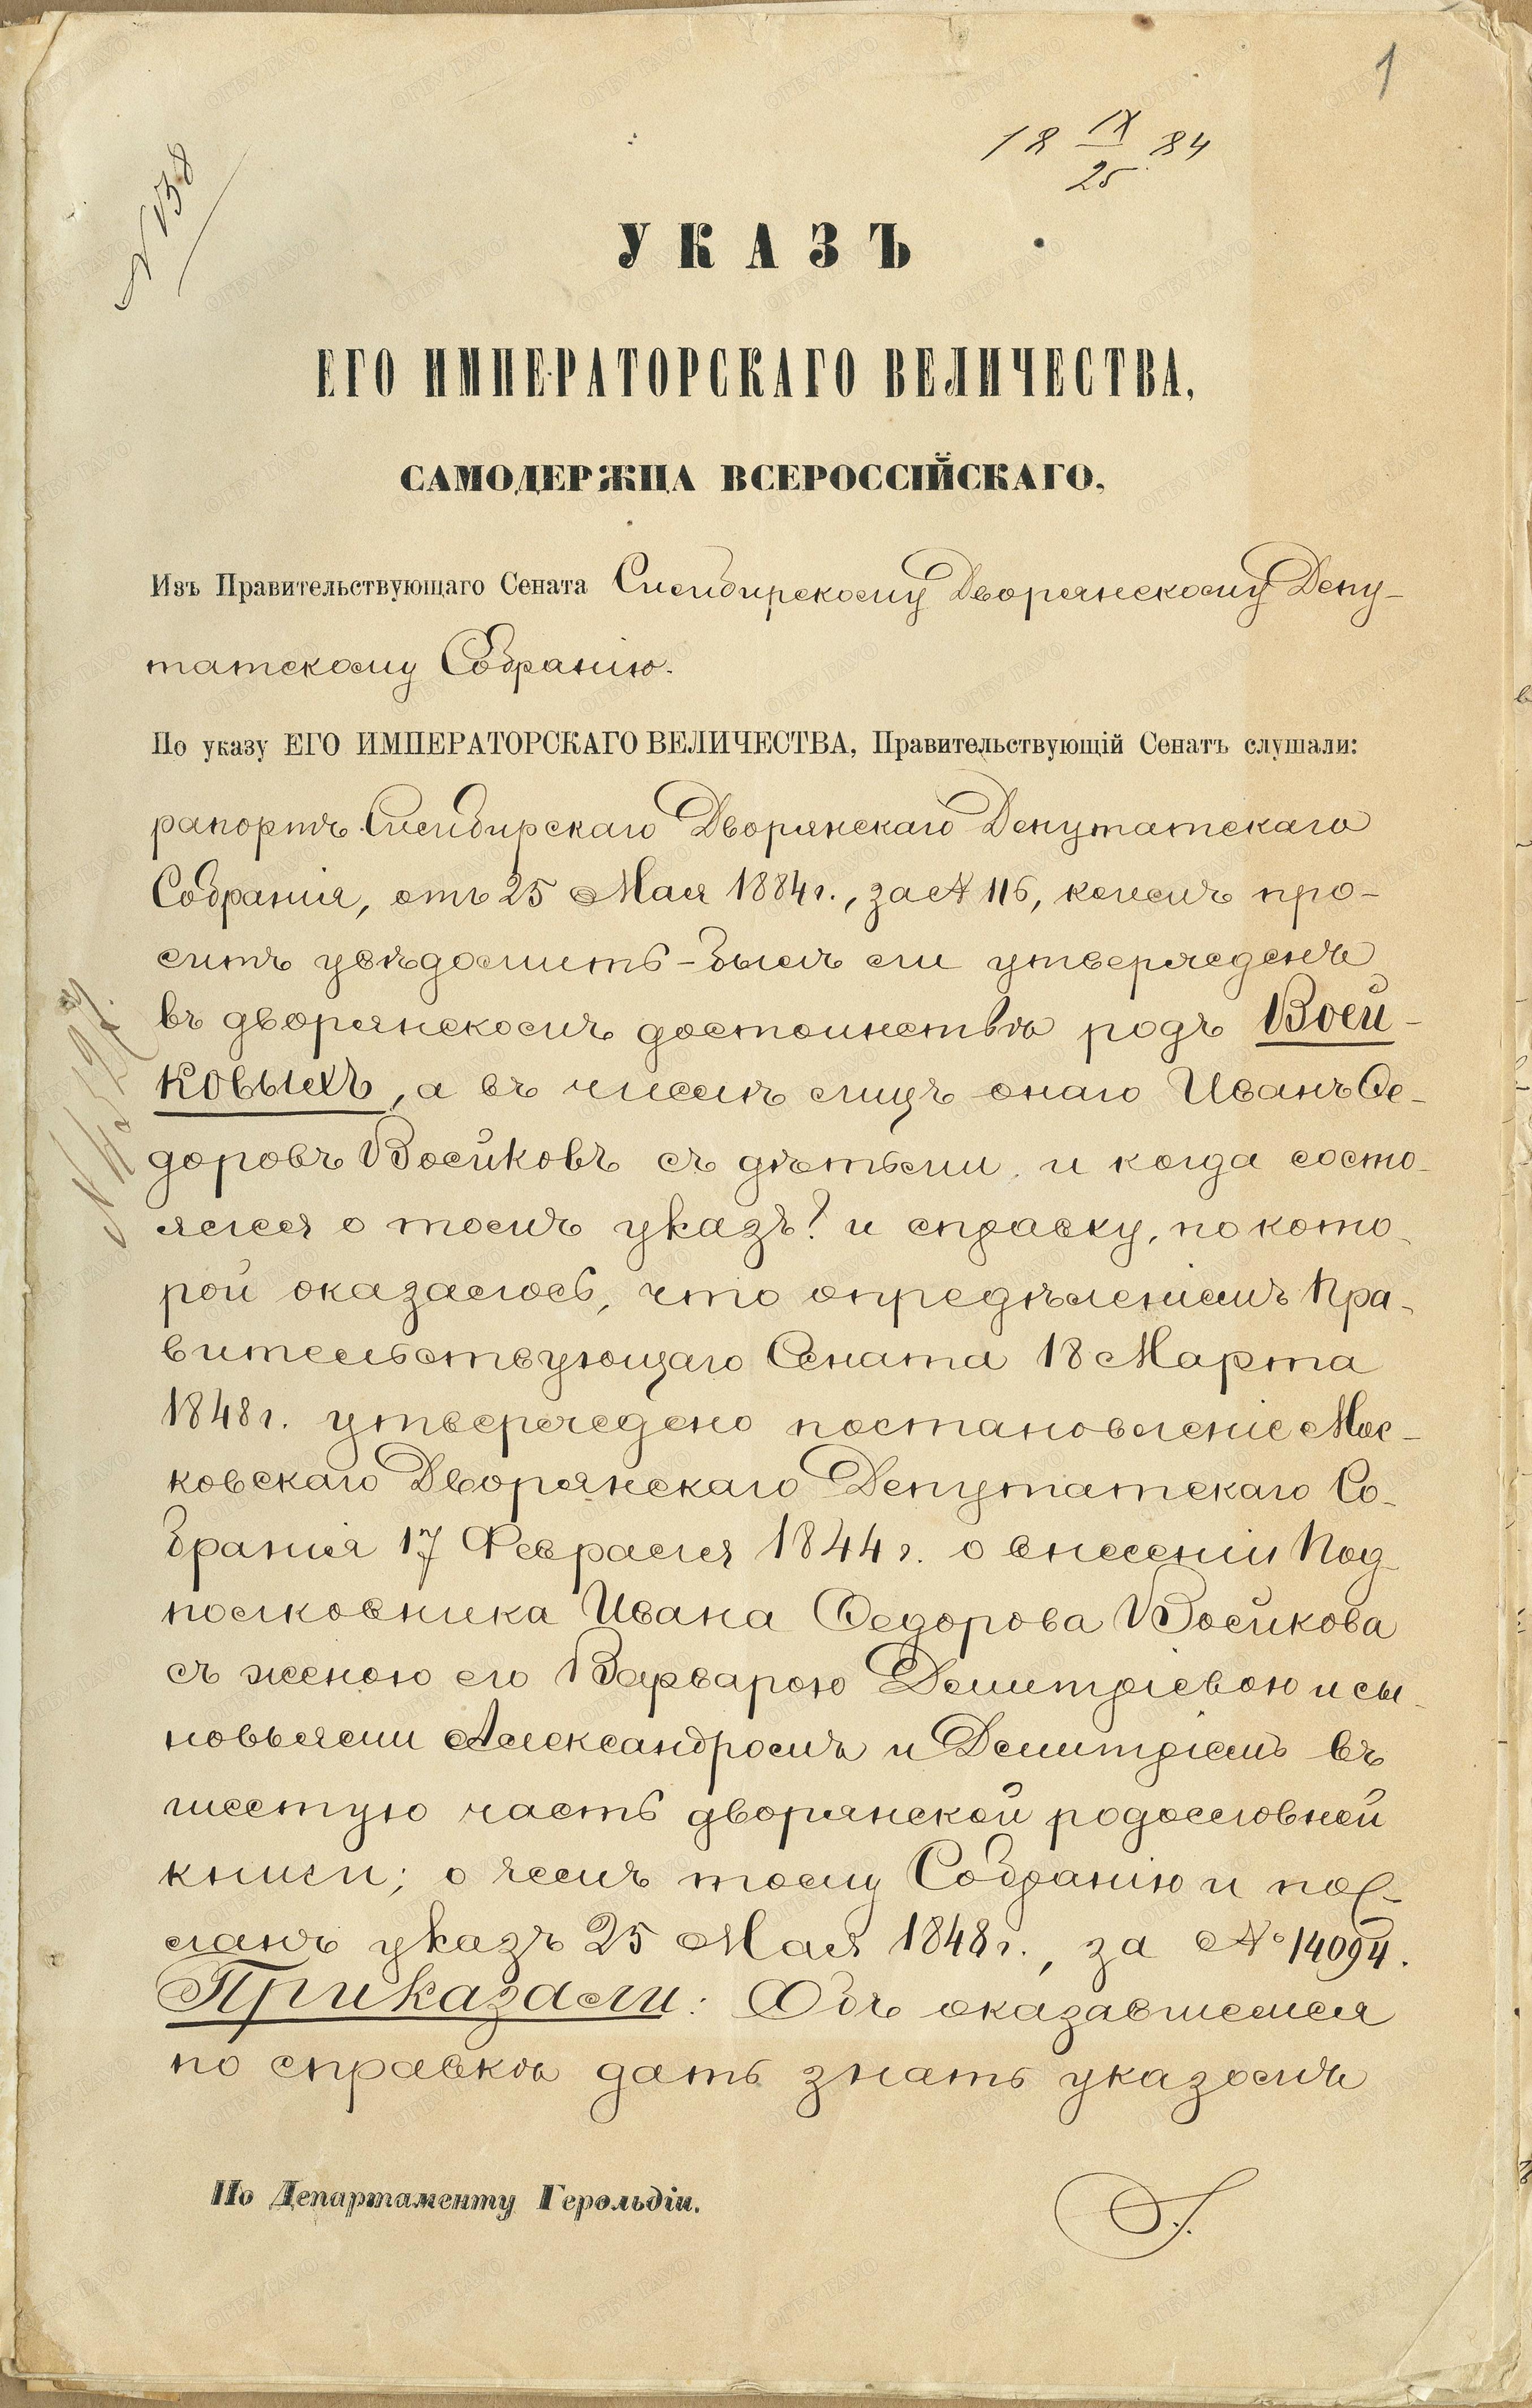 1
18 IX/25 84
N 138
УКАЗЪ
ЕГО ИМПЕРАТОРСКАГО ВЕЛИЧЕСТВА,
САМОДЕРЖЦА ВСЕРОССІЙСКАГО,
Изъ Правительствующаго Сената Симбирскому Дворянскому Депу-
татскому Собранію.
По указу ЕГО ИМПЕРАТОРСКАГО ВЕЛИЧЕСТВА, Правительствующій Сенатъ слушали:
рапортъ Симбирскаго Дворянскаго Депутатскаго
Собранія, отъ 25 Мая 1884 г., за № 116, коимъ про-
ситъ увѣдомить – былъ ли утвержденъ
въ дворянскомъ достоинствѣ родъ Воей-
ковыхъ, а въ числѣ лицъ онаго Иванъ Ѳе-
доровъ Воейковъ съ дѣтьми, и когда состо-
ялся о томъ указъ? и справку, по кото-
рой оказалось, что опредѣленіемъ Пра-
вительствующаго Сената 18 Марта
1848 г. утверждено постановленіе Мос-
ковскаго Дворянскаго Депутатскаго Со-
бранія 17 Февраля 1844 г. о внесеніи Под-
полковника Ивана Ѳедорова Воейкова
съ женою его Варварою Дмитріевою и сы-
новьями Александромъ и Дмитріемъ въ
шестую часть дворянской родословной
книги; о чемъ тому Собранію и пос-
ланъ указъ 25 Мая 1848 г., за № 14094.
Приказали: Объ оказавшемся
по справкѣ дать знать указомъ
По Департаменту Герольдіи.